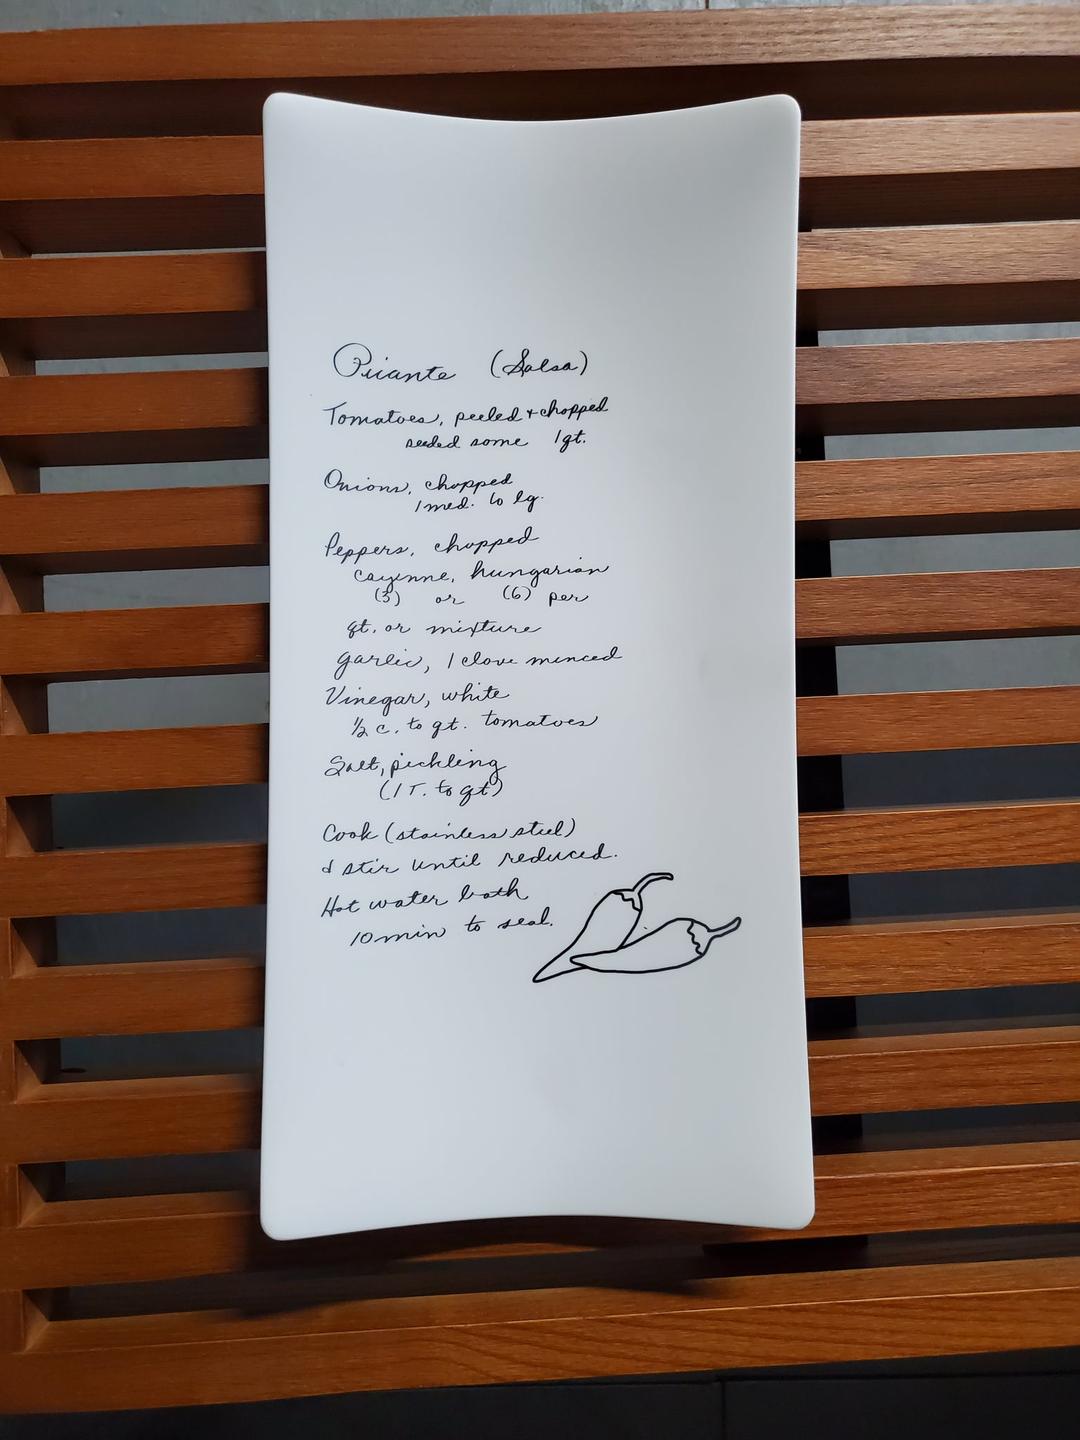 Piiante (Salsa)
Tomatoes, peeled + chopped
seeded some 1 qt.
Onions, chopped
1 med. to lg.
Peppers, chopped
cayenne, hungarian
(3) or (6) per
qt. or mixture
garlic, 1 clove minced
Vinegar, white
½ c. to qt. tomatoes
Salt, pickling
(1 T. to qt)
Cook (stainless steel)
& stir until reduced.
Hot water bath
10 min to seal.